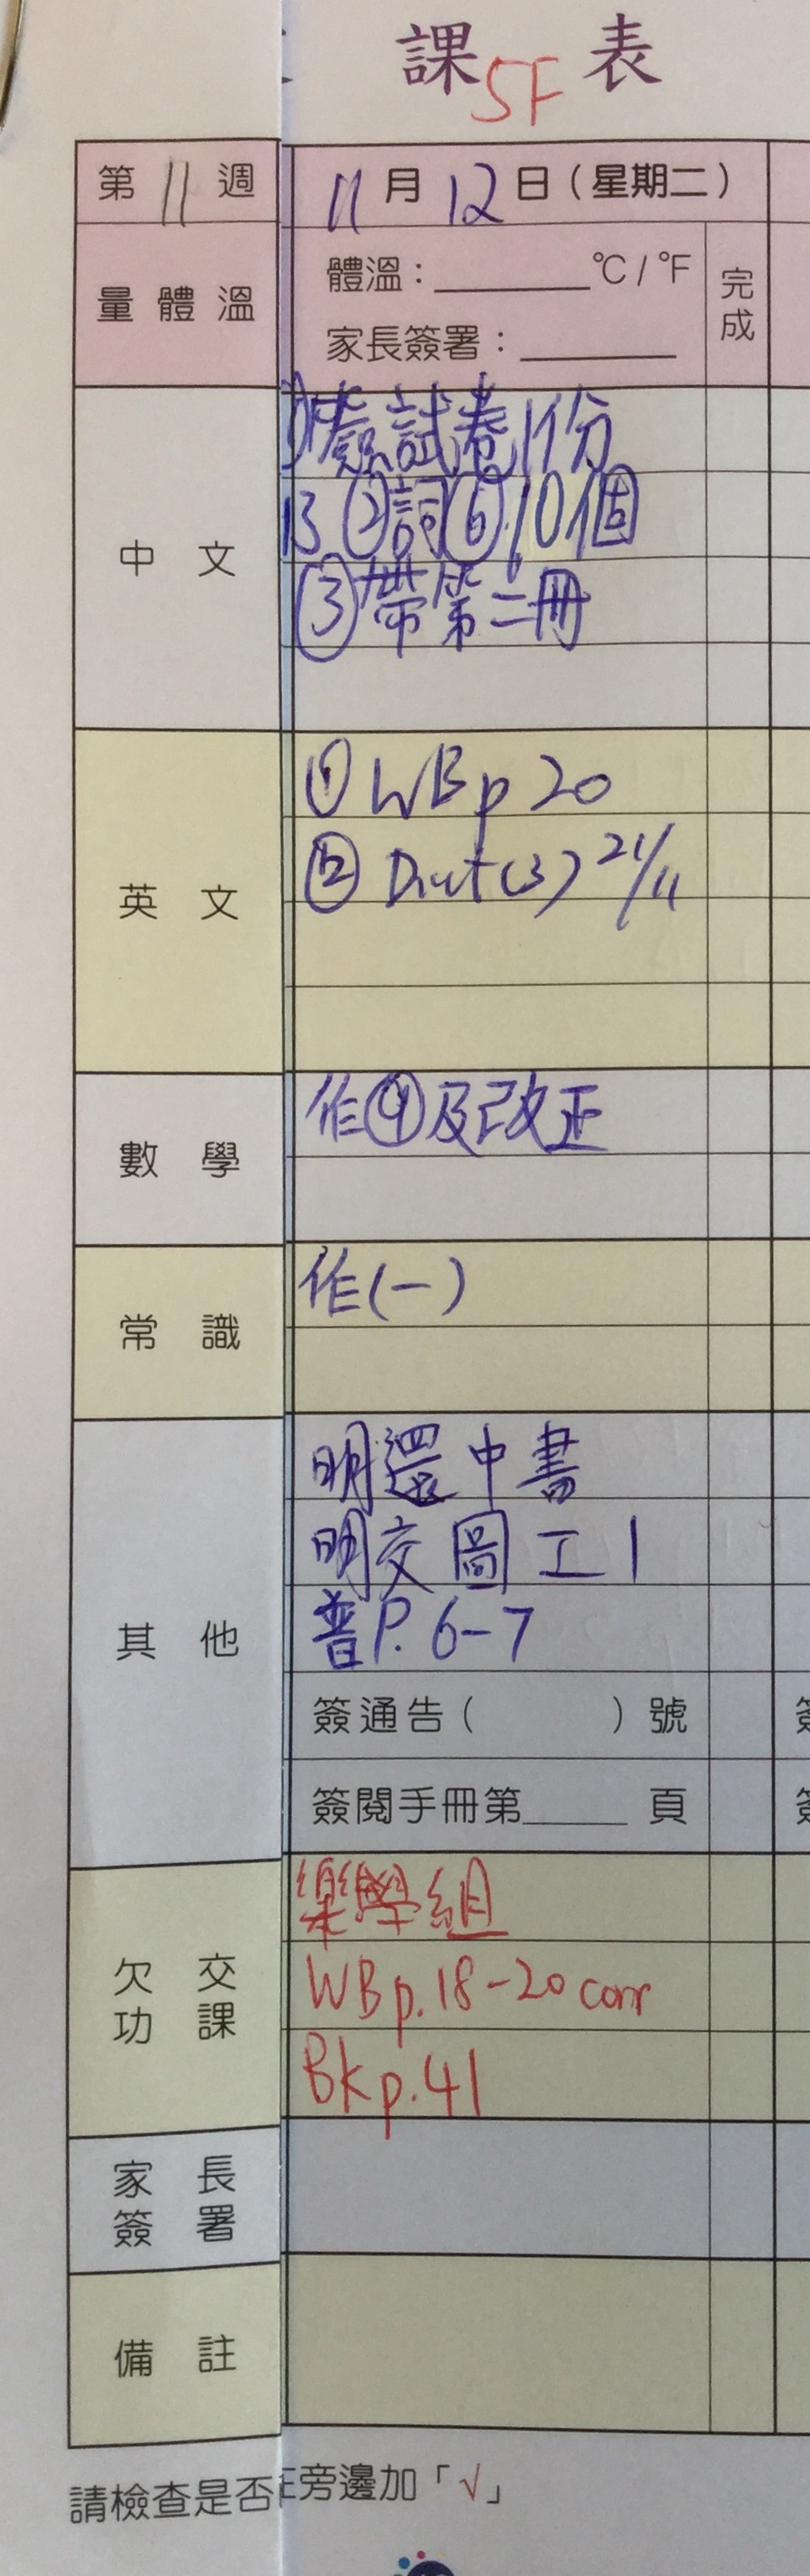 課 表
5F
第 11 週
11 月 12 日（星期二）
量 體 溫
體溫：______ °C / °F
家長簽署：______
完成
中 文
①簽試卷1份
②詞⑥10個
③帶第二冊
英 文
① WB p 20
② Dict (3) 21/11
數 學
作④及改正
常 識
作(一)
其 他
明還中書
明交圖工1
普P. 6-7
簽通告（ ）號
簽閱手冊第______頁
欠 交
功 課
樂學組
WB p. 18-20 corr
BK p. 41
家 長
簽 署
備 註
請檢查是否
旁邊加「√」